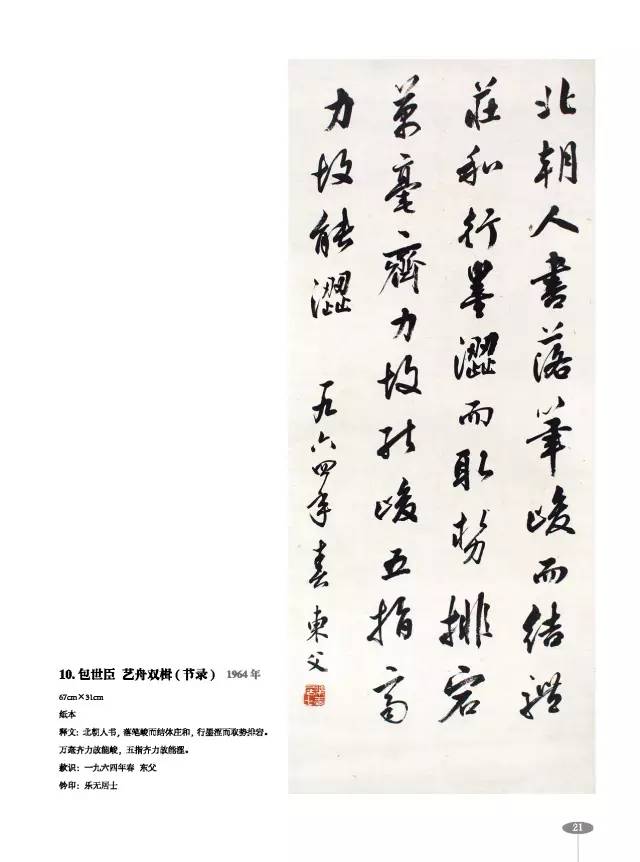 北朝人書落筆峻而結體
莊和行墨澀而取勢排宕
萬毫齊力故能峻五指齊
力故能澀 一九六四年春 東父
10. 包世臣 艺舟双楫（节录） 1964年
67cm×31cm
纸本
释文：北朝人书，落笔峻而结体庄和，行墨涩而取势排宕。
万毫齐力故能峻，五指齐力故能涩。
款识：一九六四年春 东父
钤印：乐无居士
21